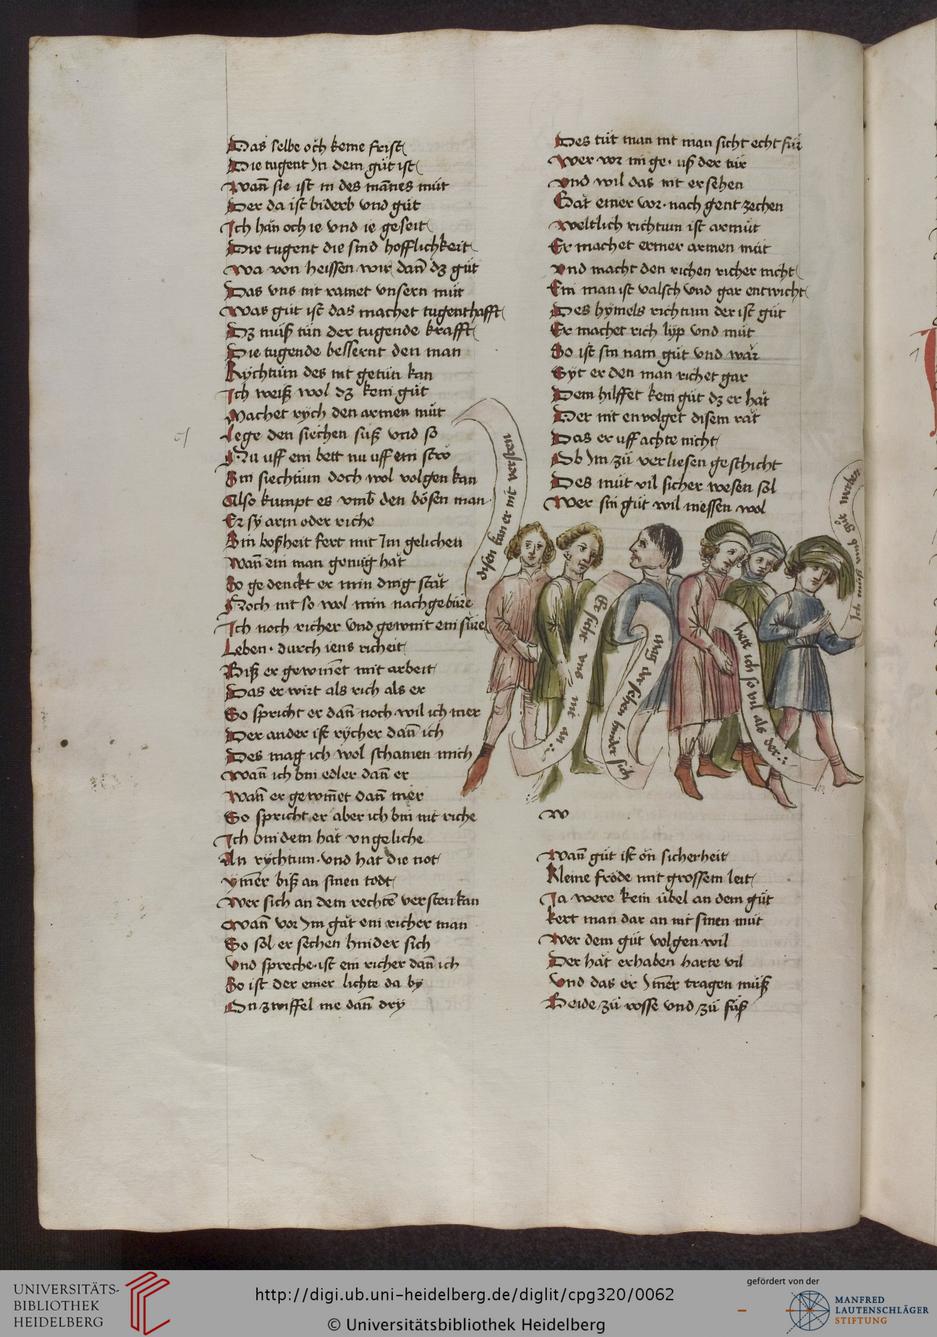 Das selbe och keine frist
Die tugent In dem gůt ist
Wañ sie ist in des mānes můt
Der da ist biderb vnd gůt
Ich hān och ie vnd ie geseit
Die tugent die sind hofflichkeit
Wa von heissen wir dañ dz gůt
Das vns nit raitet vnsern můt
Was gůt ist das machet tugenthafft
Dz můß tůn der tugende krafft
Die tugende bessernt den man
Rychtům des nit getůn kan
Ich weiß wol dz kein gůt
Machet rych den armen můt
Lege den siechen sůß vnd so
Nu uff ein bett nu uff ein stro
Sin siechtům doch wol volgen kan
Also kumpt es vmb den bösen man
Er sy arm oder riche
Sin boßheit fert mit Im gelichen
Wañ ein man genůg hāt
So gedenckt er min ding stāt
Noch nit so wol min nachgebůre
Ich noch richer vnd gewint ein sůre
Leben · durch iens richeit
Biß er gewiñet mit arbeit
Das er wirt als rich als er
So spricht er dañ noch wil ich mer
Der ander ist rycher dañ ich
Des mag ich wol schamen mich
Wañ ich bin edler dañ er
Wañ er gewiñet dañ mer
So spricht er aber ich bin nit riche
Ich bin dem hāt vngeliche
An rychtum · vnd hat die not
ymer biß an sinen todt
Wer sich an dem rechtē versten kan
Wañ vor Im gāt ein richer man
So sol er sechen hinder sich
Vnd spreche · ist ein richer dañ ich
So ist der einer lichte da by
On zwiffel me dañ dry
Des tůt man nit man sicht echt für
Wer vor im ge · uß der tür
Vnd wil das nit ersehen
Gāt einer vor · nach gent zechen
Weltlich richtum ist armůt
Er machet ermer armen můt
Vnd macht den richen richer nicht
Ein man ist valsch vnd gar entwicht
Des hymels richtum der ist gůt
Er machet rich lyp vnd můt
So ist sin nam gůt vnd wār
Syt er den man richet gar
Dem hilffet kein gůt dz er hāt
Der nit envolget disem rāt
Das er uff achte nicht
Ob Im zů verliesen geschicht
Des můt vil sicher wesen sol
Wer sin gůt wil niessen wol
disen kan er nit werffen
Er sicht vns nit an
mag versehen hinder sich
hett ich so vil als der
W
Wañ gůt ist ōn sicherheit
Kleine fröde mit grossem leit
Ja were kein übel an dem gůt
kert man dar an nit sinen můt
Wer dem gůt volgen wil
Der hāt erhaben harte vil
Vnd das er Imer tragen můß
Beide zů rosse vnd zů fůß
UNIVERSITÄTS-
BIBLIOTHEK
HEIDELBERG
http://digi.ub.uni-heidelberg.de/diglit/cpg320/0062
© Universitätsbibliothek Heidelberg
gefördert von der
MANFRED
LAUTENSCHLÄGER
STIFTUNG